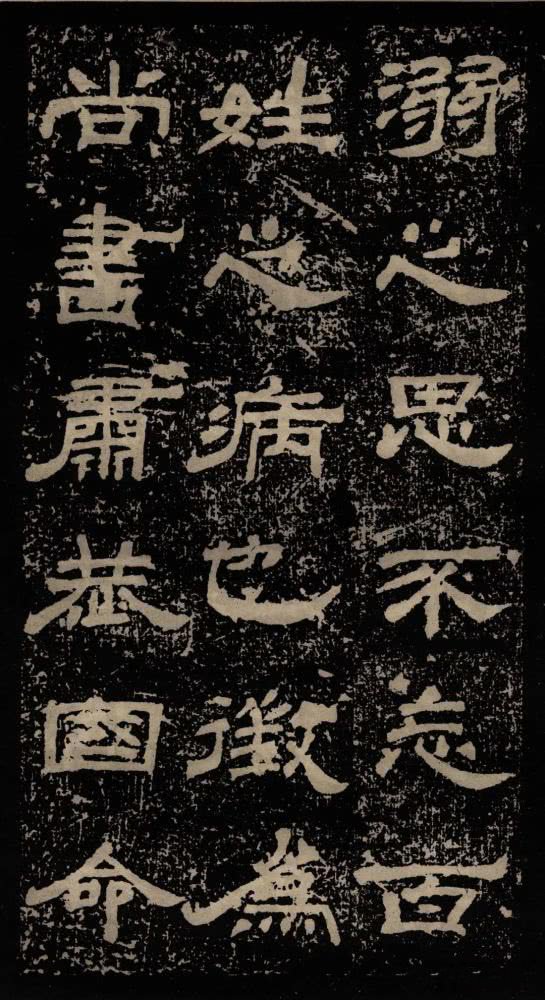 溺之思不忘百
姓之病也徵爲
尚書肅恭國命